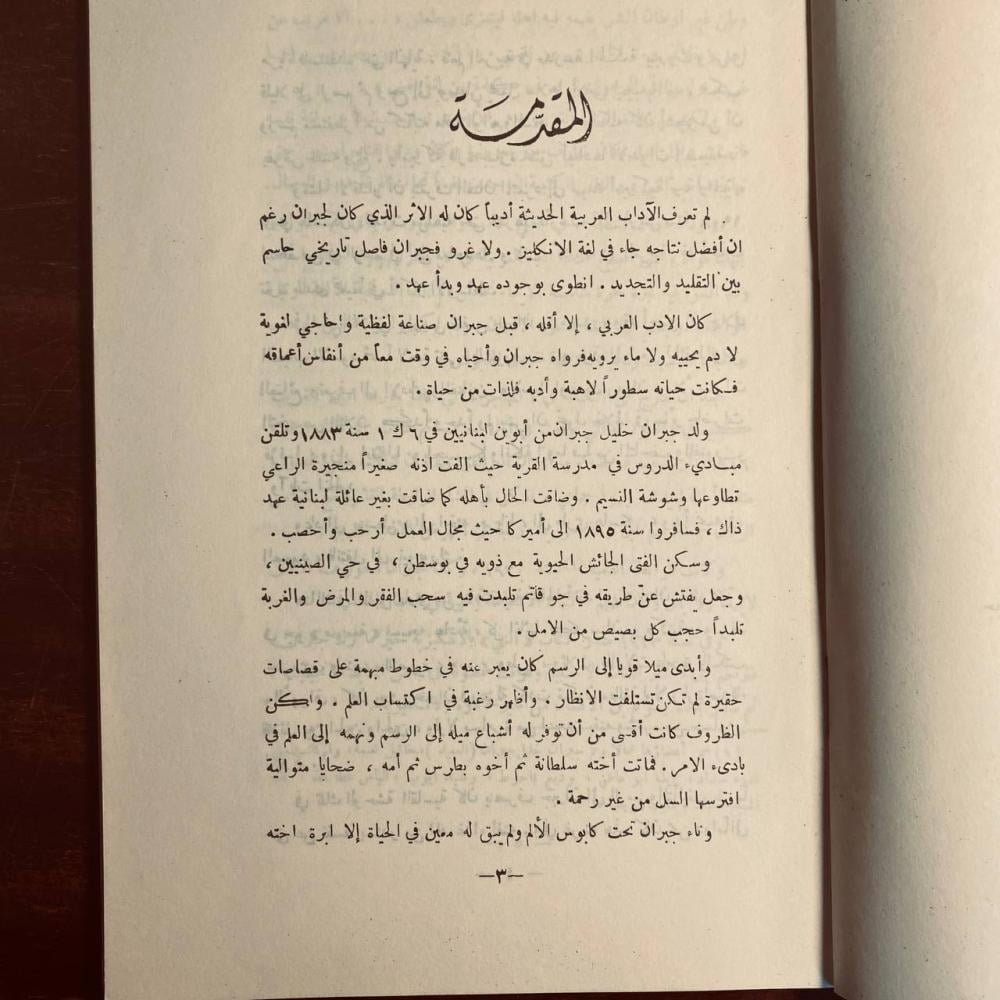 المقدّمة
لم تعرف الآداب العربية الحديثة أديباً كان له الاثر الذي كان لجبران رغم
ان أفضل نتاجه جاء في لغة الانكليز . ولا غرو فجبران فاصل تاريخي حاسم
بين التقليد والتجديد . انطوى بوجوده عهد وبدأ عهد .
كان الادب العربي ، إلا أقله ، قبل جبران صناعة لفظية واحاجي لغوية
لا دم يحييه ولا ماء يرويه فرواه جبران وأحياه في وقت معاً من أنفاس أعماقه
فكانت حياته سطوراً لاهبة وأدبه فلذات من حياة .
ولد جبران خليل جبران من أبوين لبنانيين في ٦ ك ١ سنة ١٨٨٣ وتلقن
مباديء الدروس في مدرسة القرية حيث الفت اذنه صغيراً منجيرة الراعي
تطاوعها وشوشة النسيم . وضاقت الحال بأهله كما ضاقت بغير عائلة لبنانية عهد
ذاك ، فسافروا سنة ١٨٩٥ الى أميركا حيث مجال العمل أرحب وأخصب .
وسكن الفتى الجائش الحيوية مع ذويه في بوسطن ، في حي الصينيين ،
وجعل يفتش عن طريقه في جو قاتم تلبدت فيه سحب الفقر والمرض والغربة
تلبداً حجب كل بصيص من الامل .
وأبدى ميلا قويا إلى الرسم كان يعبر عنه في خطوط مبهمة على قصاصات
حقيرة لم تكن تستلفت الانظار . وأظهر رغبة في اكتساب العلم . ولكن
الظروف كانت أقسى من أن توفر له أشباع ميله إلى الرسم ونهمه إلى العلم في
بادىء الامر . فماتت أخته سلطانة ثم أخوه بطارس ثم أمه ، ضحايا متوالية
افترسها السل من غير رحمة .
وناء جبران تحت كابوس الألم ولم يبق له معين في الحياة إلا ابرة اخته
—٣—